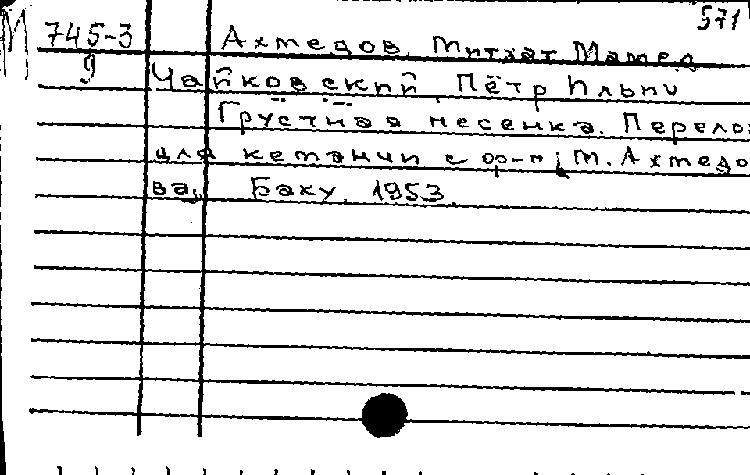 571
М 745-3
9
Ахмедов, Митхат Мамед
Чайковский, Пётр Ильич
Грустная песенка. Перело
для кеманчи с фр-п; М. Ахмедо
ва, Баку, 1953.